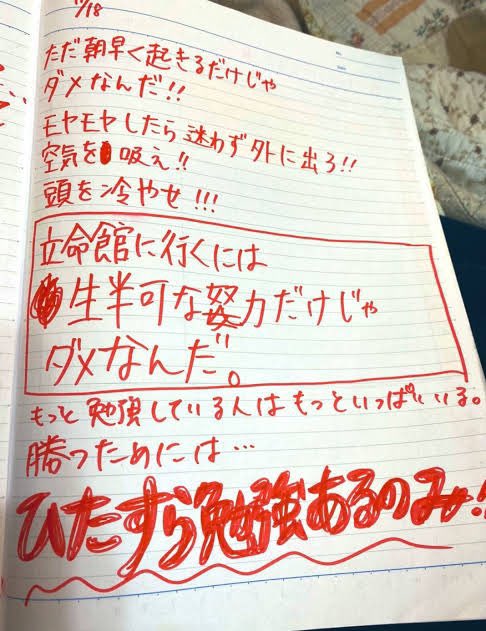 11/18
ただ朝早く起きるだけじゃ
ダメなんだ!!
モヤモヤしたら迷わず外に出ろ!!
空気を吸え!!
頭を冷やせ!!!
立命館に行くには
生半可な努力だけじゃ
ダメなんだ。
もっと勉強している人はもっといっぱいいる。
勝つためには…
ひたすら勉強あるのみ!!
No.
Date